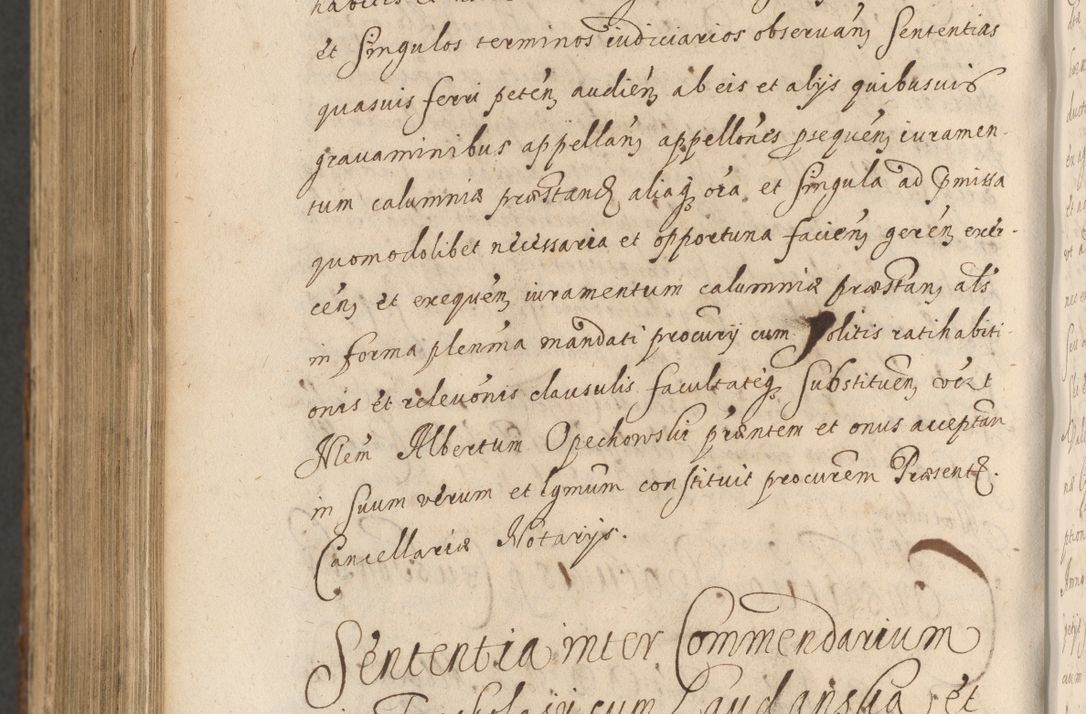 et singulos terminos iudiciarios observan, sententias
quasuis ferri peten, audien, ab eis et alijs quibusuis
grauaminibus appellan, appellones prosequen, iuramen-
tum calumniæ præstand aliaq, oia et singula ad præmissa
quomodolibet necessaria et opportuna facien, geren, exer-
cen, et exequen, iuramentum calumniæ præstan, als
in forma plenma mandati procurij cum solitis ratihabiti-
onis et releuonis clausulis facultateq, substituen,
Nlem Albertum Opechowski præntem et onus acceptan
in suum verum et lgmum constituit procurem Præsent.
Cancellariæ Notarijs.
Sententia inter Commendarium
cum Laudanska et